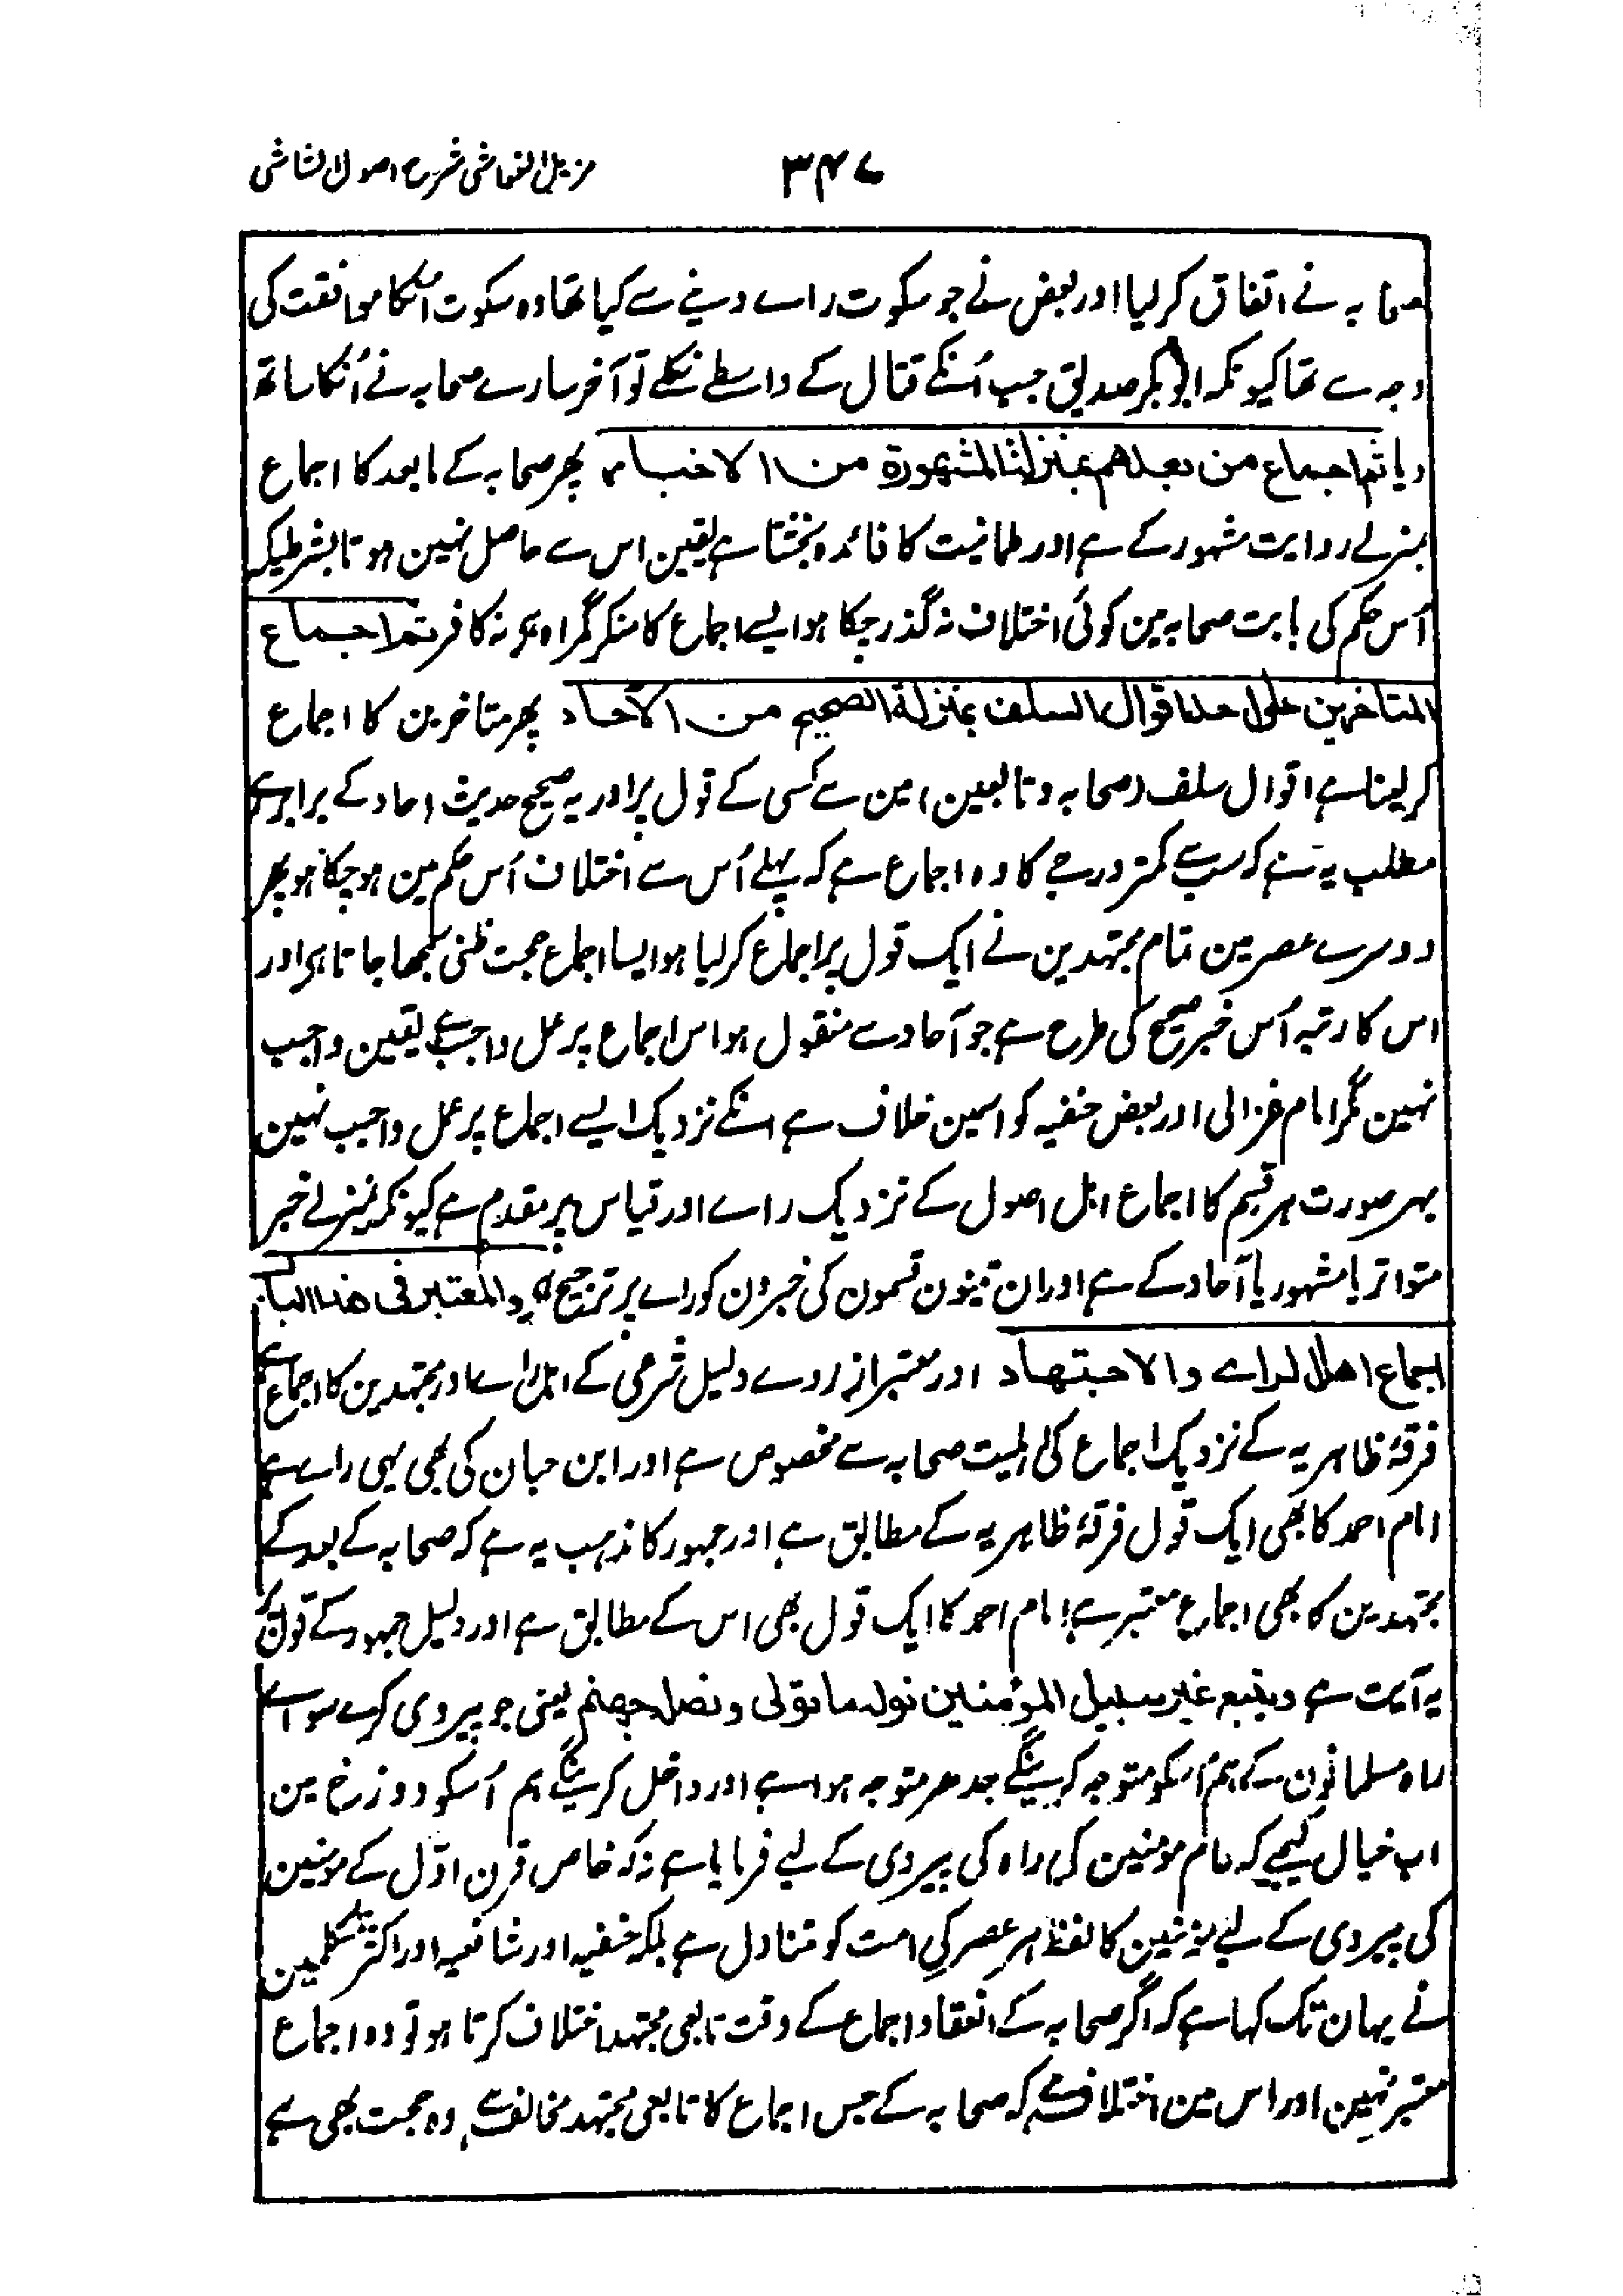 مزیل الغواشی شرح اصول الشاشی
۳۴۷
صحابہ نے اتفاق کر لیا اور بعض نے جو سکوت راے دینے سے کیا تھا وہ سکوت اُنکا موافقت کی
وجہ سے تھا کیونکہ ابوبکر صدیق جب اُنکے قتال کے واسطے نکلے تو آخر سارے صحابہ نے اُنکا ساتھ
دیا ثم اجماع من بعدهم بمنزلة المشهورة من الاخبار پھر صحابہ کے مابعد کا اجماع
بمنزلے روایت مشہور کے ہے اور طمانیت کا فائدہ بخشتا ہے یقین اس سے حاصل نہین ہوتا بشرطیکہ
اُس حکم کی بابت صحابہ مین کوئی اختلاف نہ گذر چکا ہو ایسے اجماع کا منکر گمراہ ہی نہ کافر ثم اجماع
المتاخرین علی احد اقوال السلف بمنزلة الصحیح من الآحاد پھر متاخرین کا اجماع
کر لینا ہے اقوال سلف (صحابہ و تابعین) مین سے کسی کے قول پر اور یہ صحیح حدیث احاد کے برابر ہے
مطلب یہ ہے کہ سب سے کمتر درجے کا وہ اجماع ہے کہ پہلے اُس سے اختلاف اُس حکم مین ہو چکا ہو پھر
دوسرے عصر مین تمام مجتہدین نے ایک قول پر اجماع کر لیا ہو ایسا اجماع حجت ظنی سمجھا جاتا ہی اور
اس کا رتبہ اُس خبر صحیح کی طرح ہے جو آحاد سے منقول ہو اس اجماع پر عمل واجب ہے یقین واجب
نہین مگر امام غزالی اور بعض حنفیہ کو اسمین خلاف ہے انکے نزدیک ایسے اجماع پر عمل واجب نہین
بہر صورت ہر قسم کا اجماع اہل اصول کے نزدیک راے اور قیاس پر مقدم ہے کیونکہ بمنزلے خبر
متواتر یا مشہور یا آحاد کے ہے اور ان تینون قسمون کی خبرون کو راے پر ترجیح ہے والمعتبر فی هذا الباب
اجماع اهل الراے والاجتهاد اور معتبر از روے دلیل شرعی کے اہل راے اور مجتہدین کا اجماع ہے
فرقۂ ظاہریہ کے نزدیک اجماع کی اہلیت صحابہ سے مخصوص ہے اور ابن حبان کی بھی یہی راے ہے
امام احمد کا بھی ایک قول فرقۂ ظاہریہ کے مطابق ہے اور جمہور کا مذہب یہ ہے کہ صحابہ کے بعد کے
مجتہدین کا بھی اجماع معتبر ہے امام احمد کا ایک قول بھی اس کے مطابق ہے اور دلیل جمہور کے قول کی
یہ آیت ہے ویتبع غیر سبیل المؤمنین نوله ما تولی ونصله جهنم یعنی جو پیروی کرے سواے
راہ مسلمانون کے ہم اُسکو متوجہ کرینگے جدھر متوجہ ہوا ہے اور داخل کرینگے ہم اُسکو دوزخ مین
اب خیال کیجیے کہ عام مومنین کی راہ کی پیروی کے لیے فرمایا ہے نہ کہ خاص قرن اوّل کے مومنین
کی پیروی کے لیے مؤمنین کا لفظ ہر عصر کی امت کو متناول ہے بلکہ حنفیہ اور شافعیہ اور اکثر متکلمین
نے یہان تک کہا ہے کہ اگر صحابہ کے انعقاد اجماع کے وقت تابعی مجتہد اختلاف کرتا ہو تو وہ اجماع
معتبر نہین اور اس مین اختلاف ہے کہ صحابہ کے جس اجماع کا تابعی مجتہد مخالف ہے وہ حجت بھی ہے